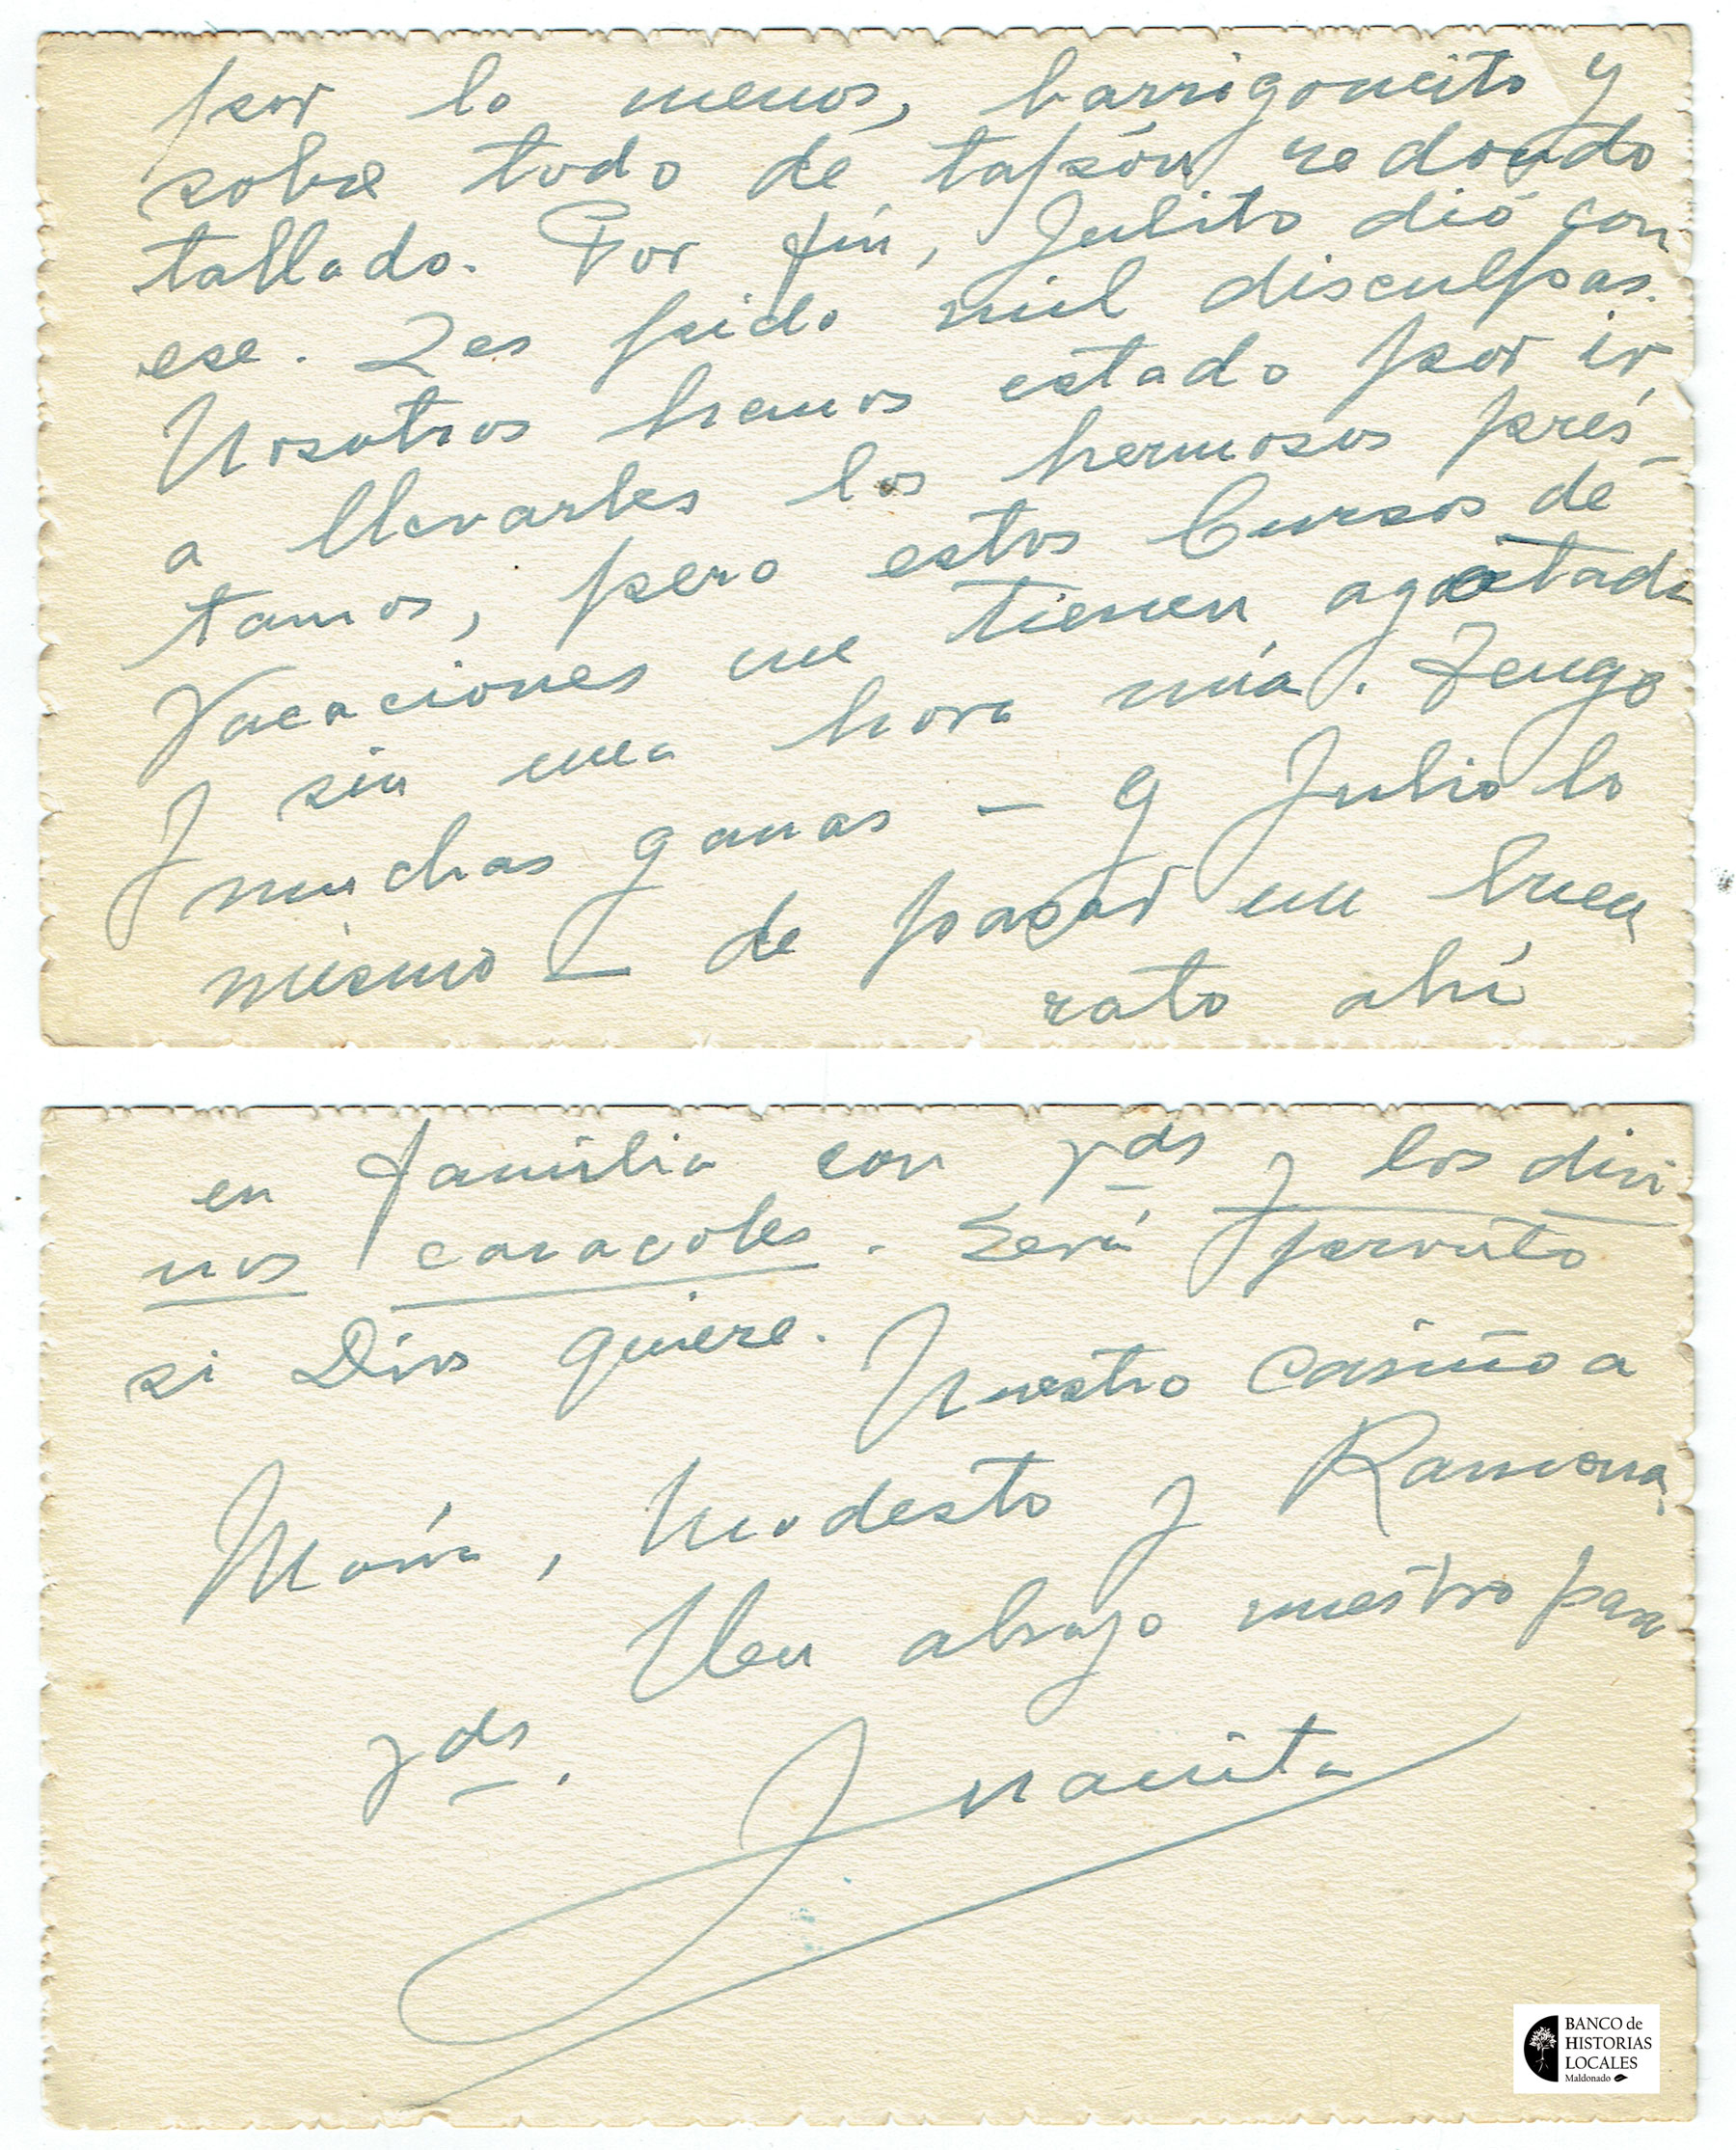 por lo menos, barrigoncito y
sobre todo de tapón redondo
tallado. Por fin, Julito dió con
ese. Les pido mil disculpas.
Nosotros hemos estado por ir,
a llevarles los hermosos prés-
tamos, pero estos Cursos de
Vacaciones me tienen agotada
y sin una hora mía. Tengo
muchas ganas — y Julio lo
mismo — de pasar un buen
rato ahí
en familia con Vds y los divi
nos caracoles. Será prontito
si Dios quiere.
Nuestro cariño a
María, Modesto y Ramona.
Un abrazo nuestro para
Vds.
Juanita
BANCO de
HISTORIAS
LOCALES
Maldonado